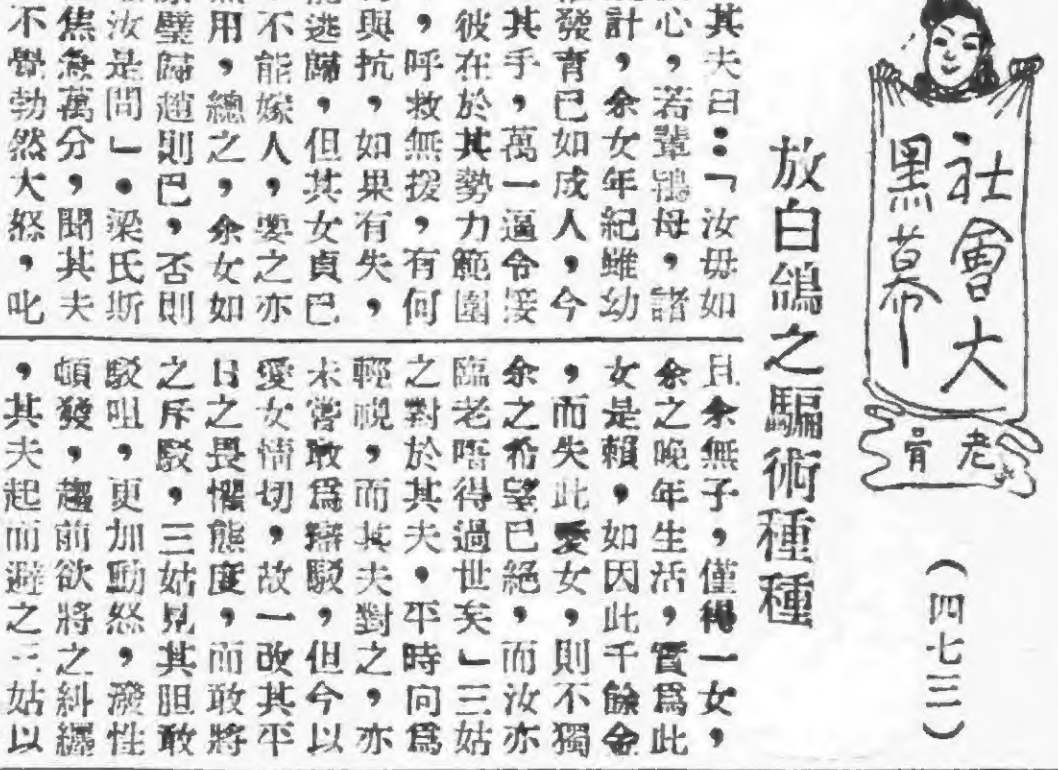 社會大
黑幕
老肯
（四七三）
放白鴿之騙術種種
其夫曰：「汝毋如
心，若輩鴇母，諸
計，余女年紀雖幼
發育已如成人，今
其手，萬一逼令接
彼在於其勢力範圍
，呼救無援，有何
與抗，如果有失，
能逃歸，但其女貞巳
不能嫁人，要之亦
用，總之，余女如
璧歸趙則巴，否則
汝是問」。梁氏斯
焦急萬分，聞其夫
不覺勃然大怒，叱
且余無子，僅得一女，
余之晚年生活，實爲此
女是賴，如因此千餘金
，而失此愛女，則不獨
余之希望巳絕，而汝亦
臨老唔得過世矣」三姑
之對於其夫，平時向爲
輕視，而其夫對之，亦
未嘗敢爲辯駁，但今以
愛女情切，故一改其平
日之畏懼態度，而敢將
之斥駁，三姑見其胆敢
駁咀，更加動怒，潑性
頓發，趨前欲將之糾纏
，其夫起而避之三姑以